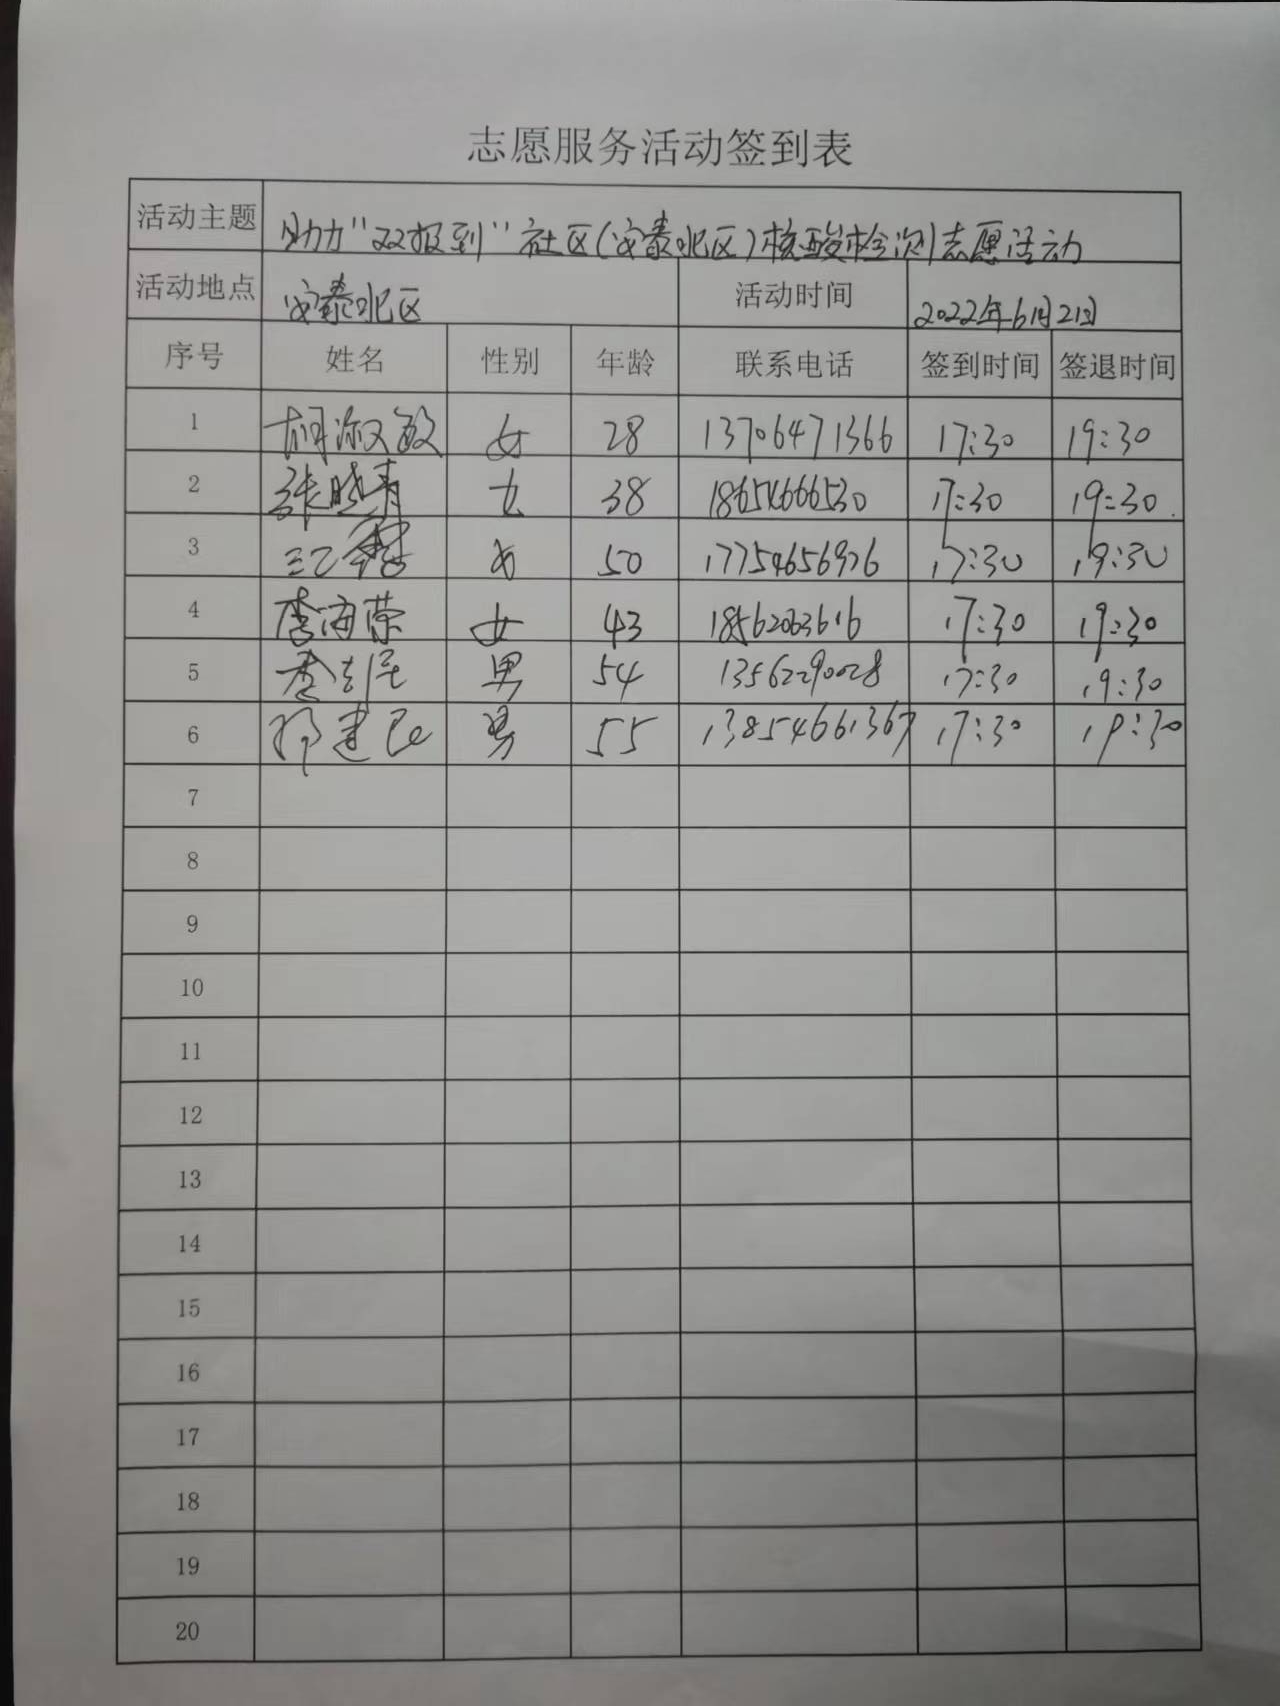 志愿服务活动签到表
活动主题 助力"双报到"社区(安泰北区)核酸检测志愿活动
活动地点 安泰北区 活动时间 2022年6月21日
序号 姓名 性别 年龄 联系电话 签到时间 签退时间
1 胡淑敏 女 28 13706471366 17:30 19:30
2 张晓青 女 38 18654666530 17:30 19:30
3 女 50 17754656926 17:30 19:30
4 李海荣 女 43 18562063616 17:30 19:30
5 男 54 13562290028 17:30 19:30
6 建民 男 55 13854661367 17:30 19:30
7
8
9
10
11
12
13
14
15
16
17
18
19
20